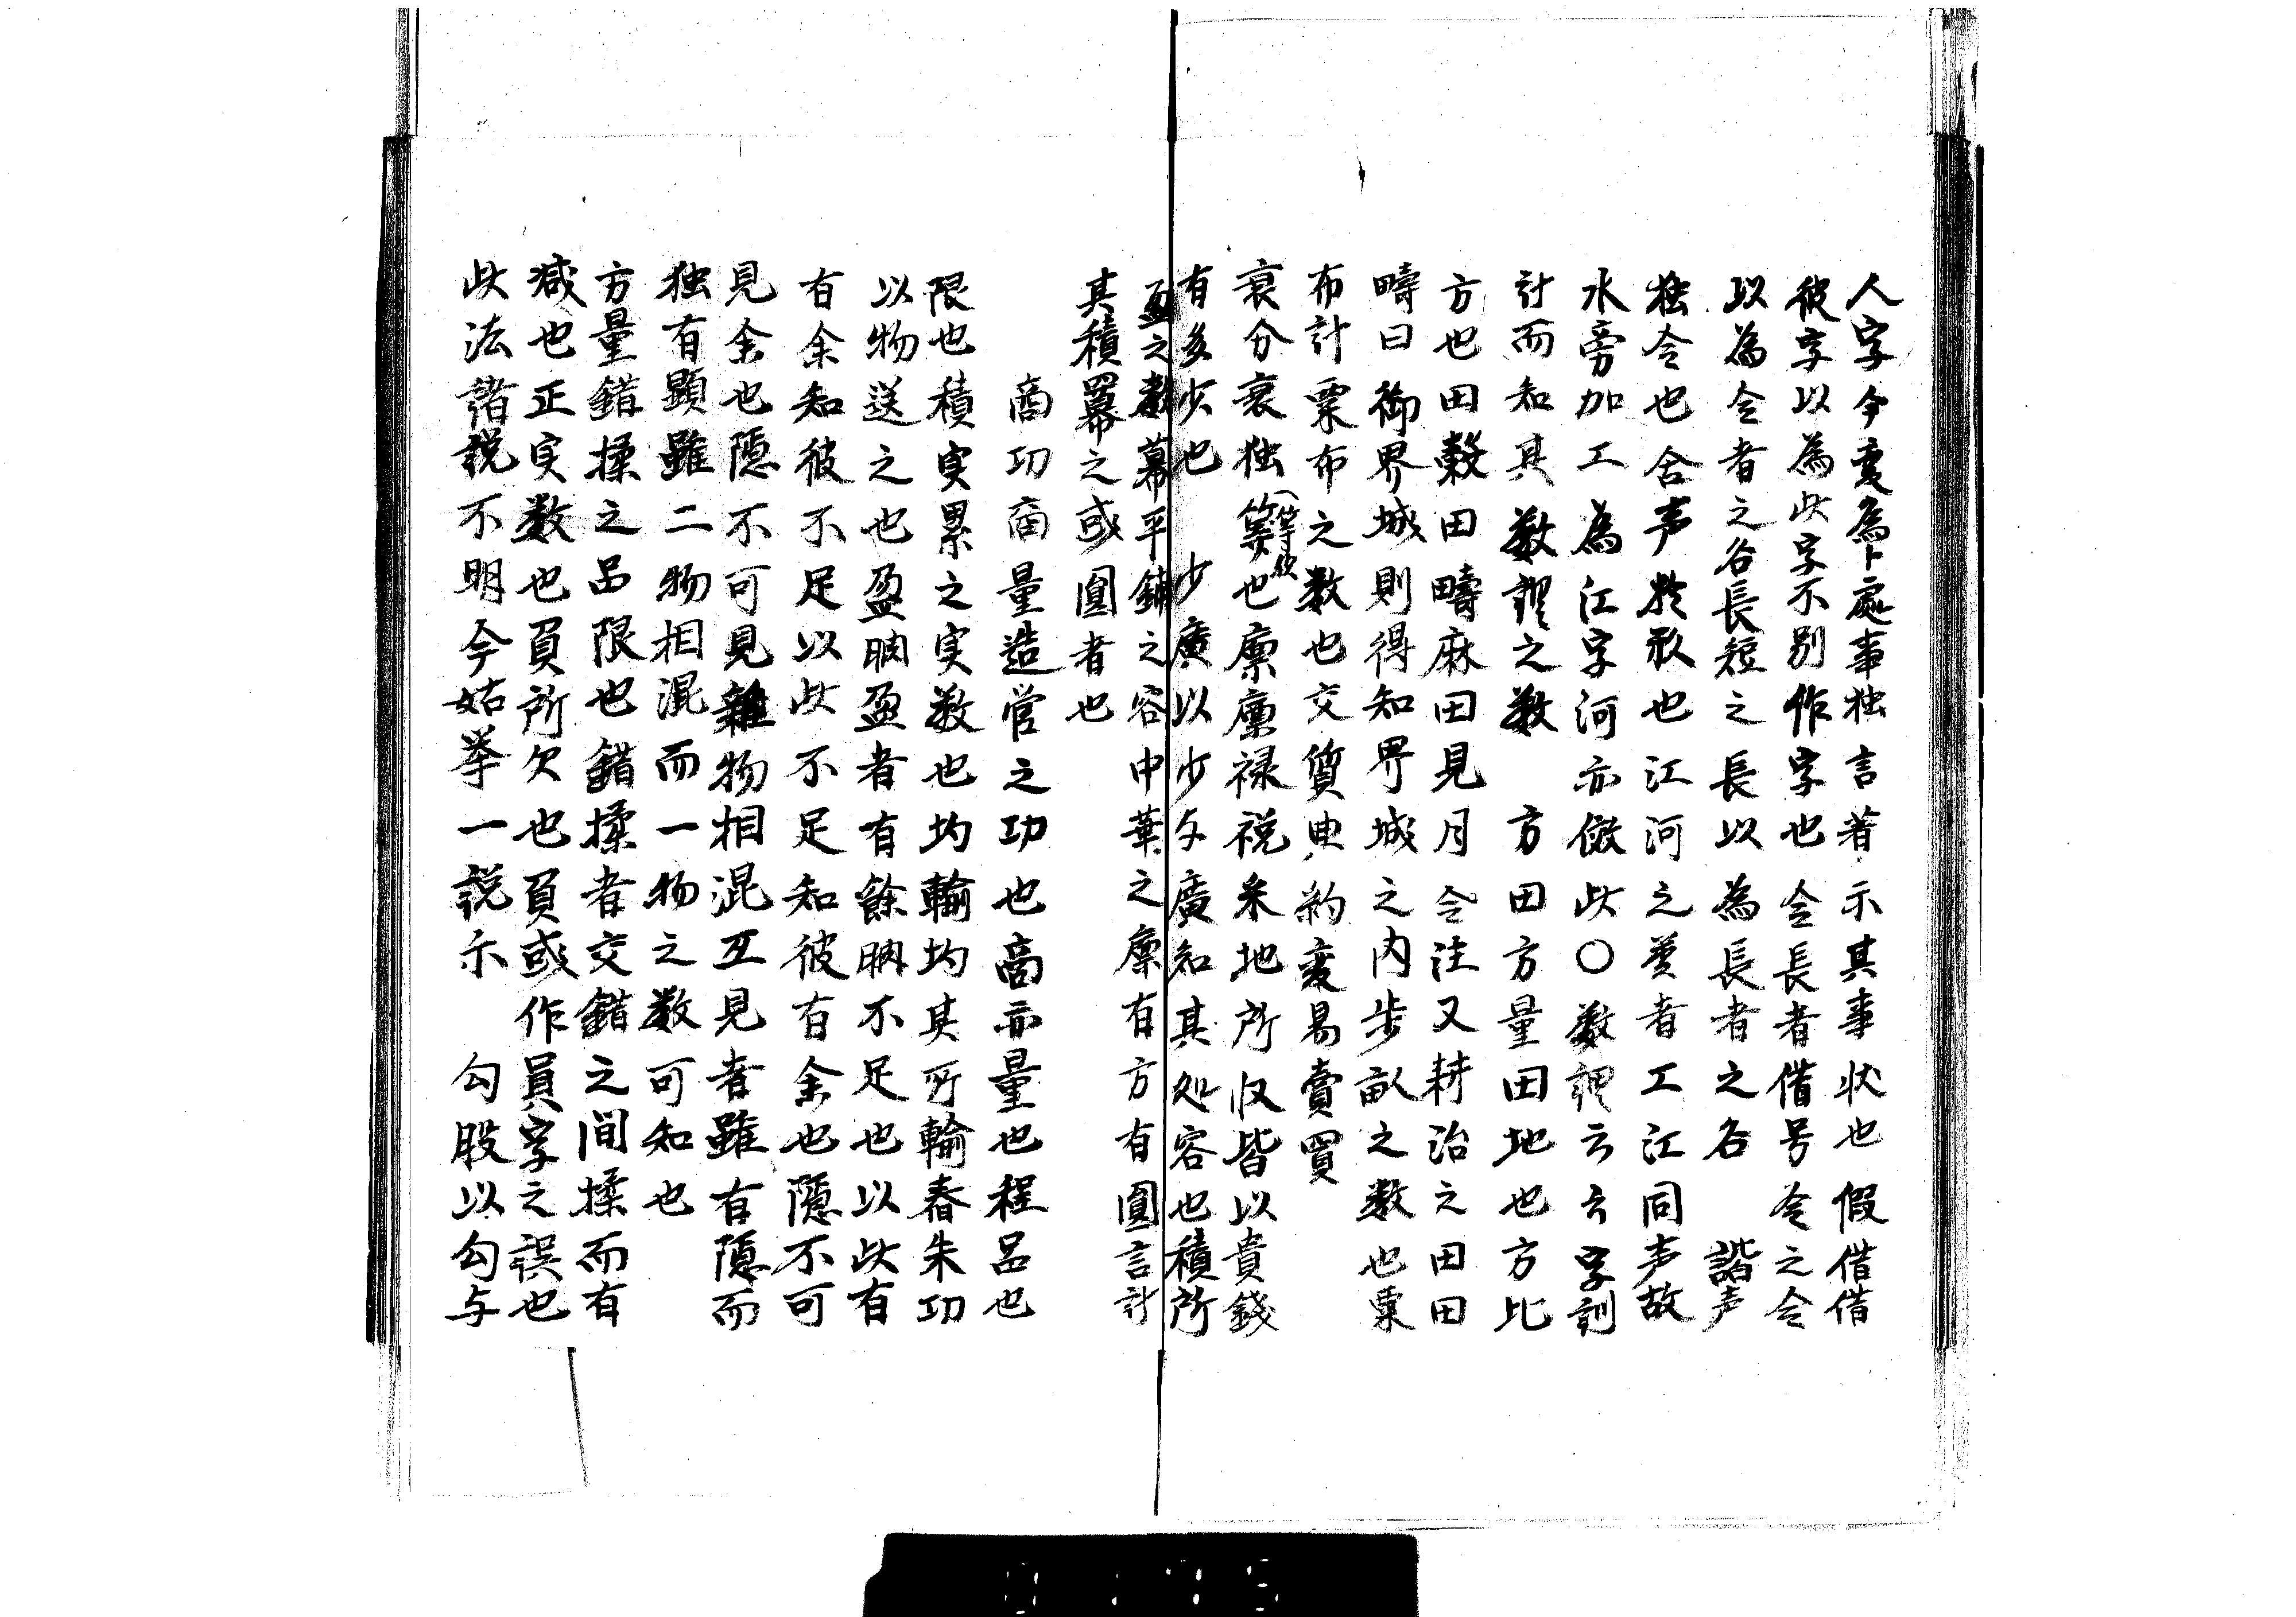 人字今变為卜處事独言著示其事状也 假借借
彼字以為此字不别作字也 令長者借号令之令
以為令者之各長短之長以為長者之各 諧声
独令也合声於形也江河之義者工江同声故
水旁加工為江字河亦倣此〇数 云云字訓
計而知其数 之数 方田方量田地也方比
方也田穀田疇麻田見月令注又耕治之田田
疇曰御界城則得知界城之内步畝之数也粟
布計粟布之数也交質典約変易賣買
衰分衰独等也廩廩禄税釆地所収皆以貴錢
有多少也 少廣以少少与廣知其処容也積所
盈之数幕平鋪之容中華之廩有方有圓言計
其積冪之或圓者也
商功商量造営之功也商亦量也程品也
限也積実累之実数也均輸均其所輸舂朱功
以物送之也盈朒盈者有餘朒不足也以此有
有余知彼不足以此不足知彼有余也隱不可
見余也隱不可見雜物相混互見者雖有隱而
独有顕雖二物相混而一物之数可知也
方量錯揉之品限也錯揉者交錯之间揉而有
减也正実数也負所欠也負或作員字之誤也
此法諸説不明今姑挙一説示 勾股以勾与